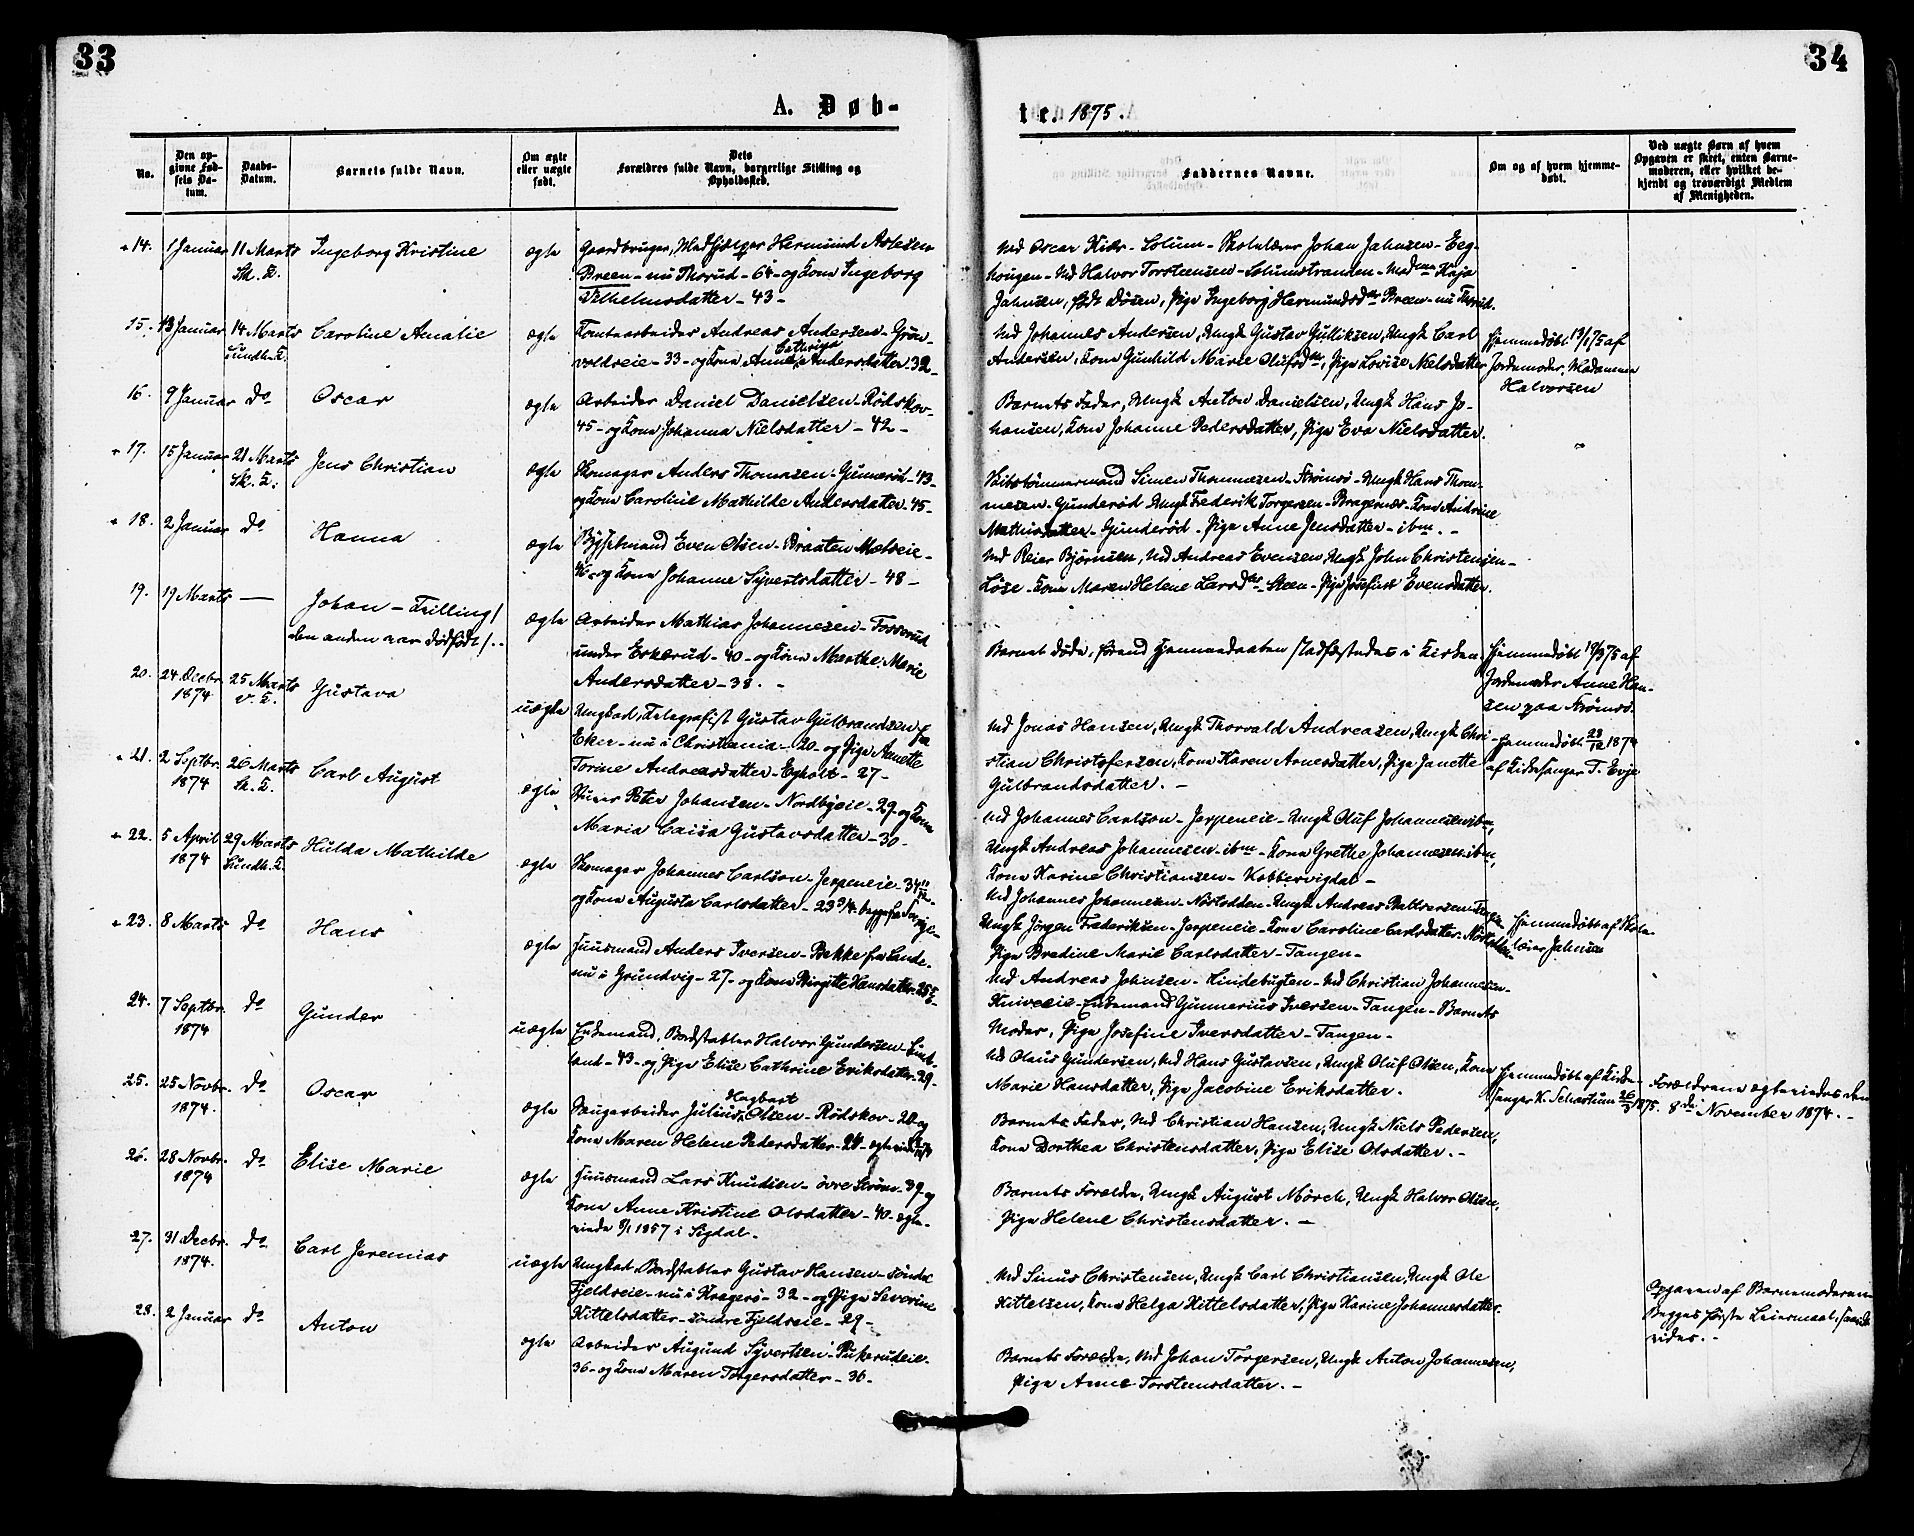 33
34
A. Døb-
te. 1875.
No.
Den op-
givne Fød-
sels Da-
tum.
Daabs-
Datum.
Barnets fulde Navn.
Om ægte
eller uægte
født.
Dets
Forældres fulde Navn, borgerlige Stilling og
Opholdssted.
Faddernes Navne.
Om og af hvem hjemme-
døbt.
Ved uægte Børn af hvem
Opgaven er skeet, enten Barne-
moderen, eller hvilket be-
kjendt og troværdigt Medlem
af Menigheden.
14. 1 Januar 11 Marts Ingeborg Kristine ægte Gaardbruger, Medhjælper Hermund Aslesen
Sk. K.
Breen - nu Thorud - 64 - og Kona Ingeborg
Vilhelmsdatter - 43 -
Ml Oscar Kiær - Solum - Skolelærer Johan Jahnsen - Eeg-
hougen - Ml Halvor Torstensen - Solumstranden - Madme Kaja
Jahnsen, født Døsen, Pige Ingeborg Hermundsdr Breen - nu Thorud.
15. 13 Januar 14 Marts Caroline Amalie ægte Tomtearbeider Andreas Andersen - Grøn-
Sundh. K.
Cathrine
voldseie - 33 - og Kona Anne Andersdatter 32 -
Ml Johannes Andersen, Ungk Gustav Gulliksen, Ungk Carl
Andersen, Kona Gunhild Marie Olufsdr, Pige Lovise Nielsdatter
Hjemmedøbt 13/1 75 af
Jordemoder, Madamme
Halvorsen
16. 9 Januar do Oscar ægte Arbeider Daniel Danielsen - Rødskov -
45 - og Kona Johanna Nielsdatter - 42 -
Barnets Fader, Ungk Anton Danielsen, Ungk Hans Jo-
hansen, Kona Johanne Pedersdatter, Pige Eva Nielsdatter.
17. 15 Januar 21 Marts Jens Christian ægte Skomager Anders Thomesen - Gunnerød - 43 -
Sk. K.
og Kona Caroline Mathilde Andersdatter 45 -
Skibstømmermand Simen Thommesen - Strømsø - Ungk Hans Thom-
mesen - Gunderød Ungk Frederik Torgersen - Bragernæs - Kona Andrine
Mathiasdatter - Gunderød - Pige Anne Jensdatter - ibm. -
18. 2 Januar do Hanna ægte Bygselmand Even Olsen - Braaten Mælseie -
46 - og Kona Johanne Syvertsdatter - 48 -
Ml Reier Bjørnsen, Ml Andreas Evensen, Ungk John Christensen -
Løse - Kona Maren Helene Larsdr - Steen - Pige Josefine Evensdatter.
19. 19 Marts — Johan - Tvilling /
den anden var dødfødt /. -
ægte Arbeider Mathias Johannesen - Fosserud
under Eskerud - 40 - og Kona Marthe Marie
Andersdatter - 38. -
Barnet døde, førend Hjemmedaaben stadfæstedes i Kirken.
Hjemmedøbt 19/3 75 af
Jordemoder Anne Han-
sen paa Strømsø.
20. 24 Decbr. 25 Marts Gustava
1874 v. K.
uægte Ungkarl, Telegrafist Gustav Gulbrandsen fra
Eker - nu i Christiania - 20 - og Pige Annette
Torine Andreasdatter - Egholt - 27 -
Ml Jonas Hansen, Ungk Thorvald Andreasen, Ungk Chri-
stian Christofersen, Kona Karen Arnesdatter, Pige Janette
Gulbrandsdatter. -
Hjemmedøbt 28/12 1874
af Kirkesanger T. Evje
21. 2 Septbr. 26 Marts Carl August
1874 Sk. K.
ægte Huser Peter Johansen - Nordbyeie - 29 - og Kona
Maria Caisa Gustavsdatter - 30 -
Ml Johannes Carlson - Jerpeneie - Ungk Oluf Johannesen ibm,
Ungk Andreas Johannesen - ibm - Kona Grethe Johannesen ibm,
Kona Karine Christiansen - Kobbervigdal -
22. 5 April 29 Marts Hulda Mathilde
1874 Sundh. K.
ægte Skomager Johannes Carlson - Jerpeneie - 34 11/12 -
og Kona Augusta Carlsdatter - 23 3/4 -
Ml Johannes Johannesen - Nøstodden - Ungk Andreas
Ungk Jørgen Frederiksen - Jerpeneie - Kona Caroline Carlsdatter - Nøstodden
Pige Bredine Marie Carlsdatter - Tangen -
Hjemmedøbt af Skole-
lærer Jahnsen
23. 8 Marts do Hans ægte Huusmand Anders Iversen - Bakke fra Lande -
nu i Grundvig - 27 - og Kona Birgitte Hansdatter 25
Ml Andreas Johnsen - Hindebugten - Ml Christian Johannesen -
Kniveeie - Enkemand Gunnerius Iversen - Tangen - Barnets
Moder, Pige Josefine Iversdatter - Tangen -
24. 7 Septbr. do Gunder
1874
uægte Enkemand, Bordstabler Halvor Gundersen - Lind-
land - 43 - og Pige Elise Cathrine Eriksdatter - 29 -
Ml Olaus Gundersen, Ml Hans Gustavsen, Ungk Oluf Olsen, Kona
Marie Hansdatter, Pige Jacobine Eriksdatter.
Hjemmedøbt af Kirke-
sanger K. Schartum 26/3 1875.
Forældrene ægteviedes den
8de November 1874. -
25. 25 Novbr. do Oscar
1874.
Hagbart
ægte Saugarbeider Julius Olsen - Rødskov - 20 - og
Kona Maren Helene Pedersdatter - 24 -
Barnets Fader, Ml Christian Hansen, Ungk Niels Pedersen,
Kona Dorthea Christensdatter, Pige Elise Olsdatter. -
26. 28 Novbr. do Elise Marie
1874
ægte Huusmand Lars Knudsen - øvre Strøm - 39 - og
Kona Anne Kristine Olsdatter - 40 - ægte-
viede 8/1 1857 i Sigdal. -
Barnets Forældre, Ungk August Mørch, Ungk Halvor Olsen,
Pige Helene Christensdatter. -
27. 31 Decbr. do Carl Jeremias
1874.
uægte Ungkarl, Bordstabler Gustav Hansen - søndre
Fjeldseie - nu i Kragerø - 32 - og Pige Severine
Kittelsdatter - søndre Fjeldseie - 29 -
Ml Sinus Christensen, Ungk Carl Christiansen, Ungk Ole
Kittelsen, Kona Helga Kittelsdatter, Pige Karine Johannesdatter
Opgaven af Barnemoderen
Begges første Leiermaal,
28. 2 Januar do Anton ægte Arbeider Augund Syvertsen - Pukerudeie -
36 - og Kona Maren Torgersdatter - 36 -
Barnets Forældre, Ml Johan Torgersen, Ungk Anton Johannesen,
Pige Anne Torstensdatter. -